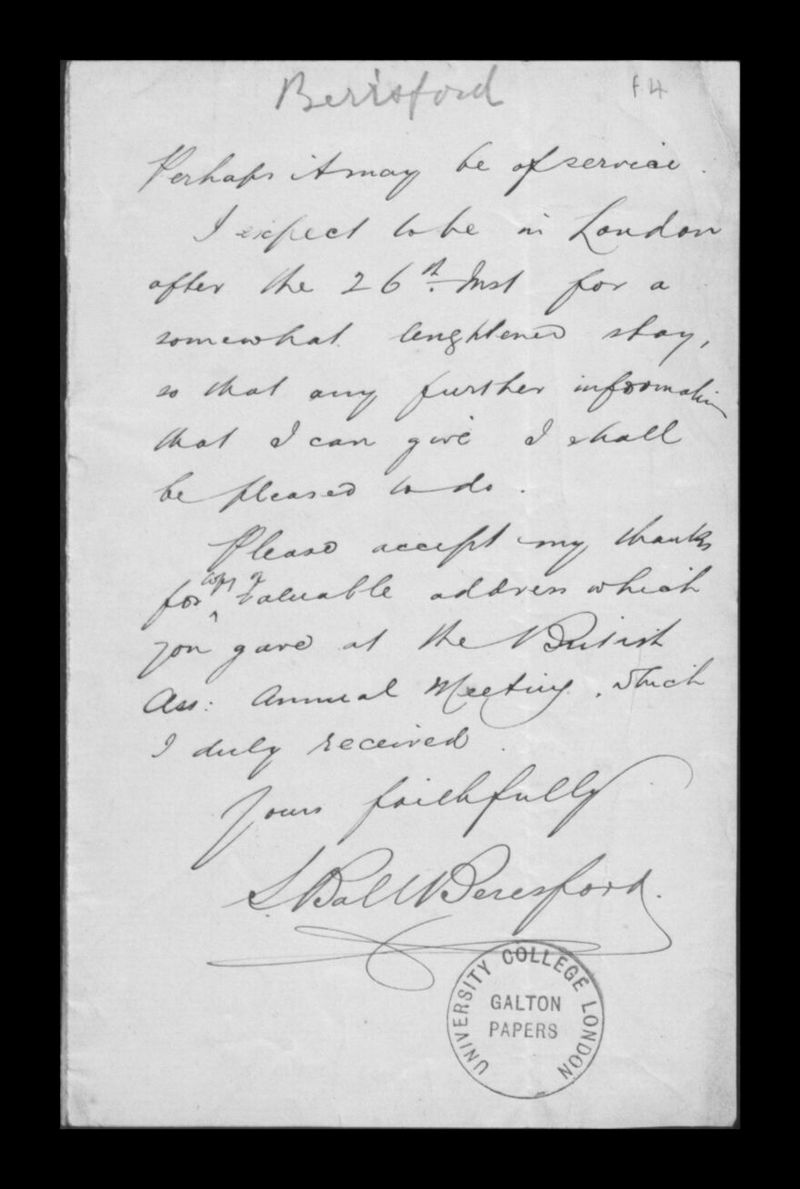 Berisford f4
Perhaps it may be of service.
I expect to be in London
after the 26th. Inst for a
somewhat lenghtened stay,
so that any further information
that I can give I shall
be pleased to do.
Please accept my thanks
for copy of valuable address which
you gave at the British
Ass: Annual Meeting, which
I duly received.
Yours faithfully
S. Ball Beresford.
UNIVERSITY COLLEGE LONDON
GALTON
PAPERS